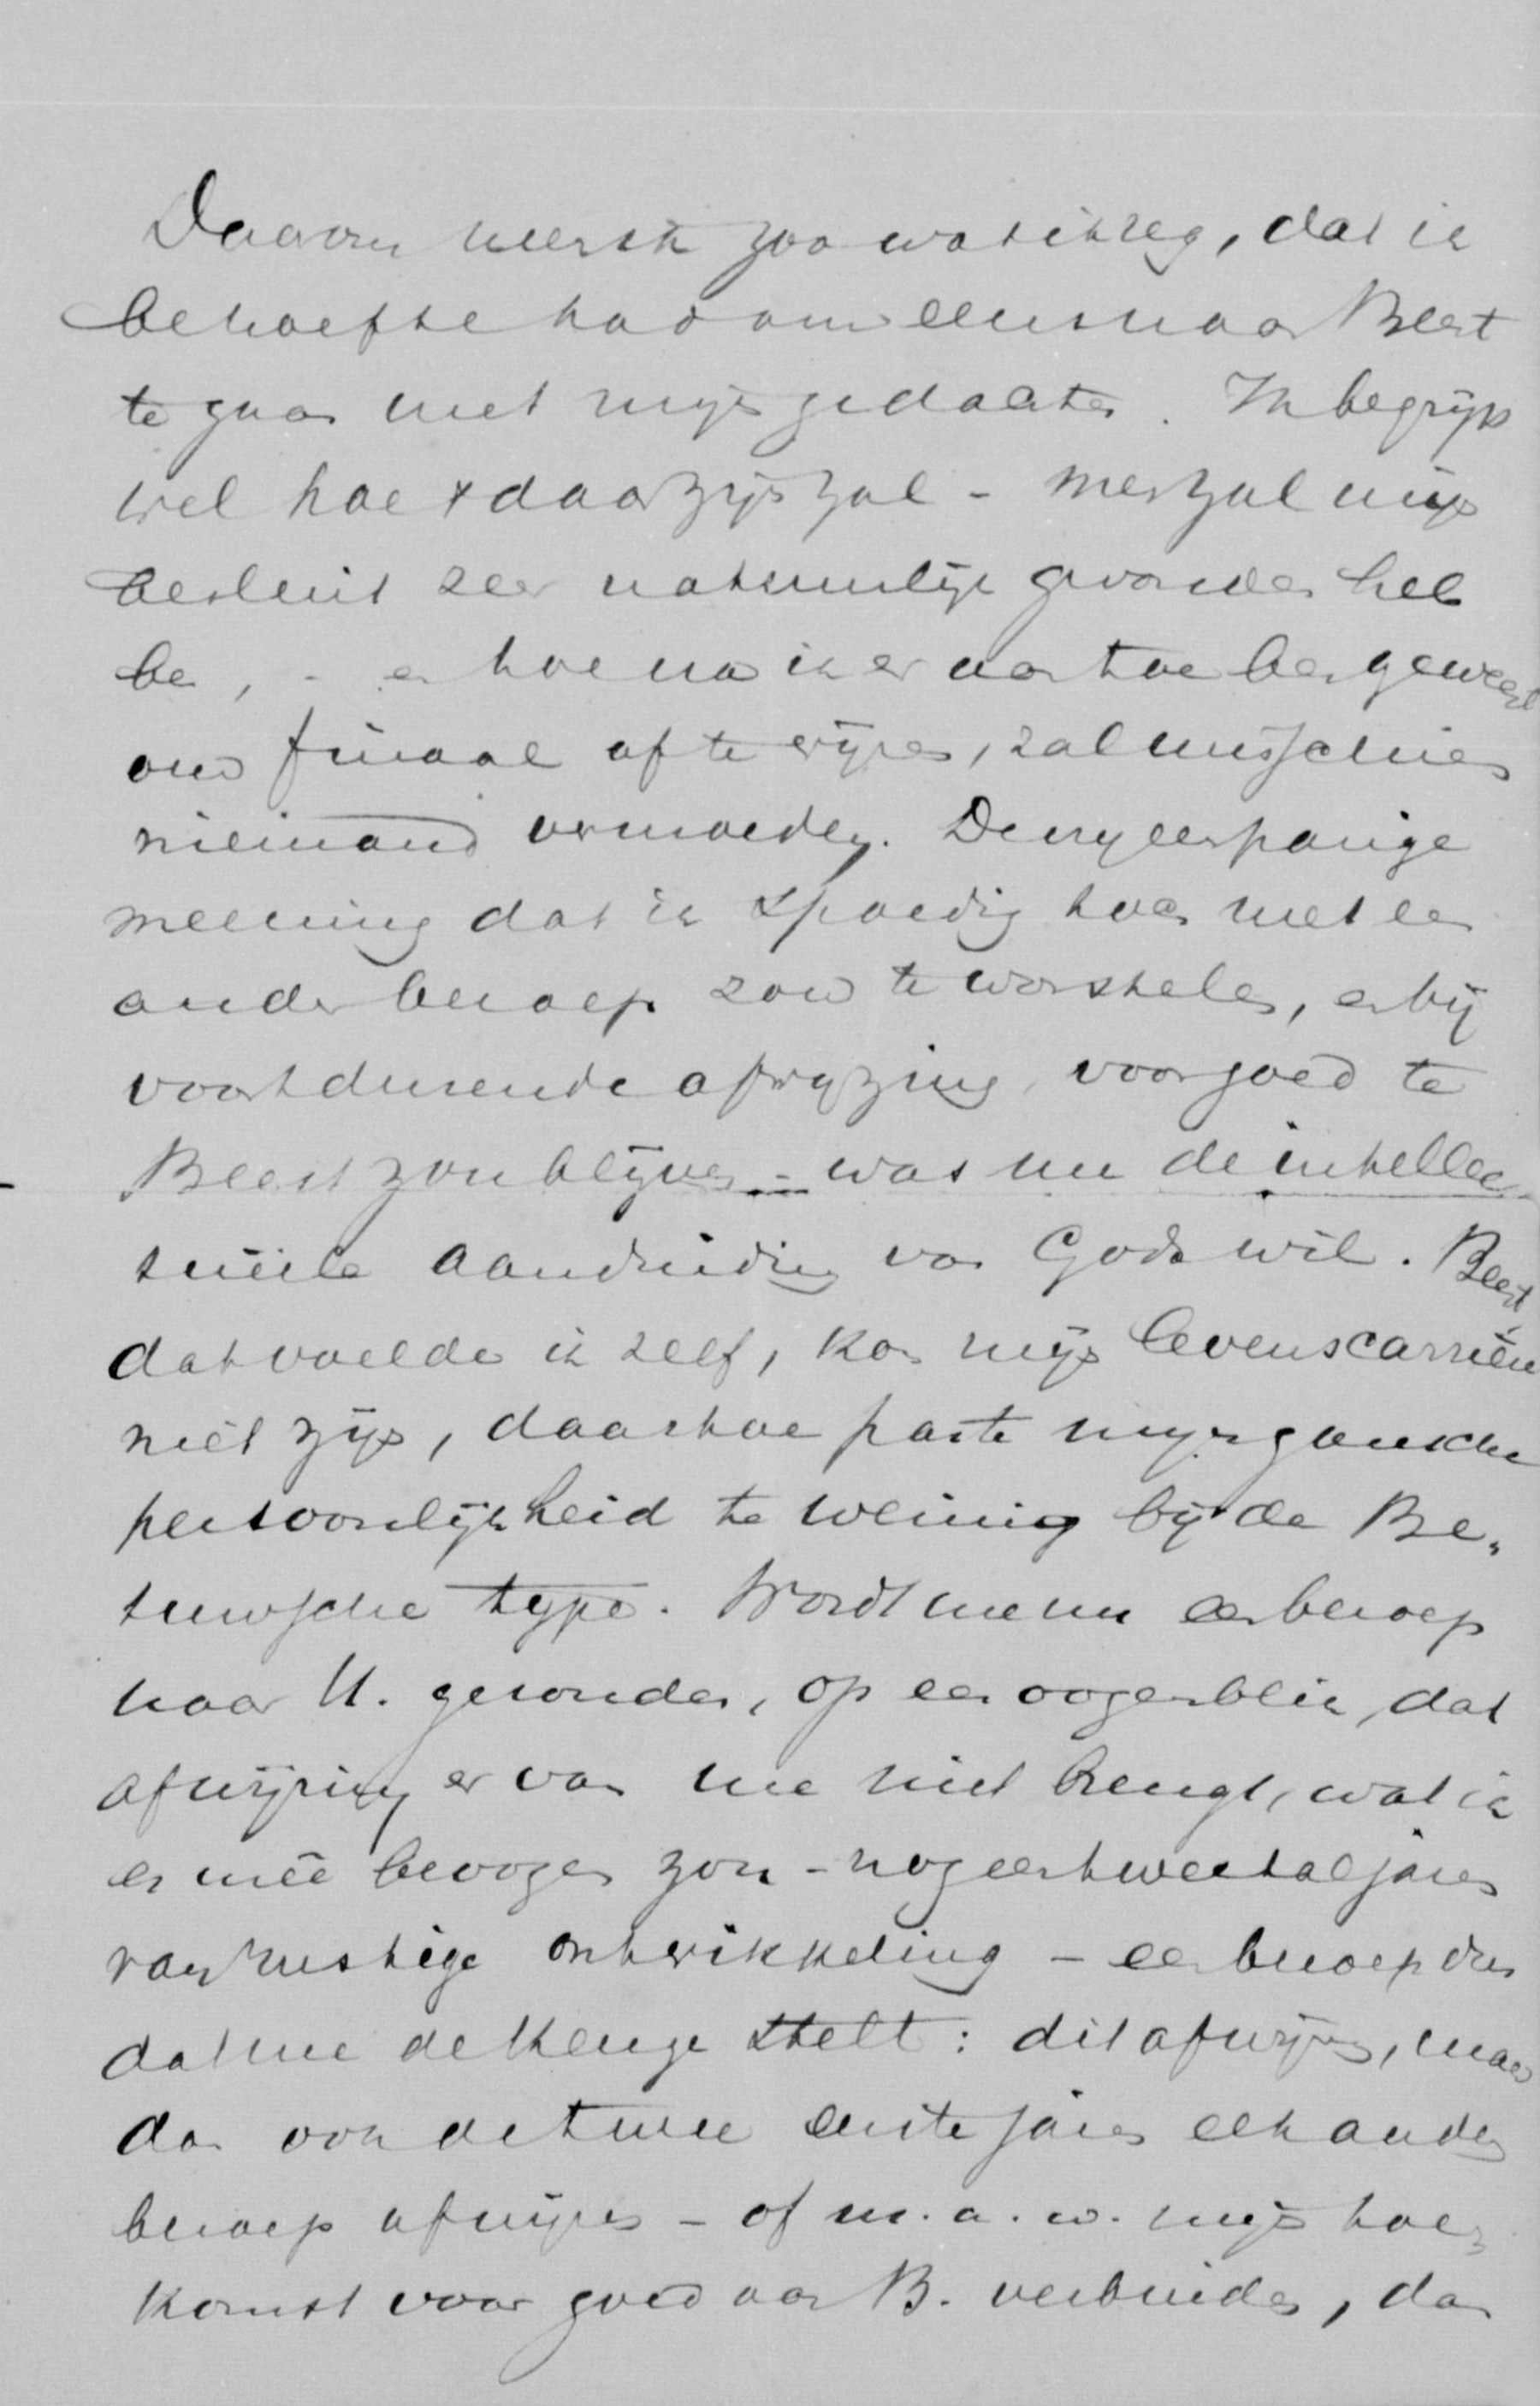 Daarom merk zoo wat ik zeg, dat ik
behoefte had om eens naar Beest
te gaan met mijn gedachten. Ik begrijp
wel hoe 't daar zijn zal - men zal mijn
besluit zeer natuurlijk gevonden heb
ben, - en hoe na ik er aan toe ben geweest
om finaal af te wijzen, zal misschien
niemand vermoeden. De uwe eenparige
meening dat ik spoedig toch met een
ander beroep zou te worstelen, en bij
voortdurende afwijzing voor goed te
Beest zou blijven - was me de intellec
tuëele aanduiding van Gods wil. Beest
dat voelde ik zelf, kon mijn levenscarrière
niet zijn, daartoe paste mijn gansche
persoonlijkheid te weinig bij de Be„
tuwsche type. Wordt me nu een beroep
naar U. gezonden, op een oogenblik, dat
afwijzing er van me niet brengt, wat ik
er mêe beoogen zou - nog een tweetal jaren
van rustige ontwikkeling - een beroep dus
dat me de keuze stelt: dit afwijzen, maar
dan ook de twee eerste jaren elk ander
beroep afwijzen - of m. a. w. mijn toe„
komst voor goed aan B. verbinden, dan